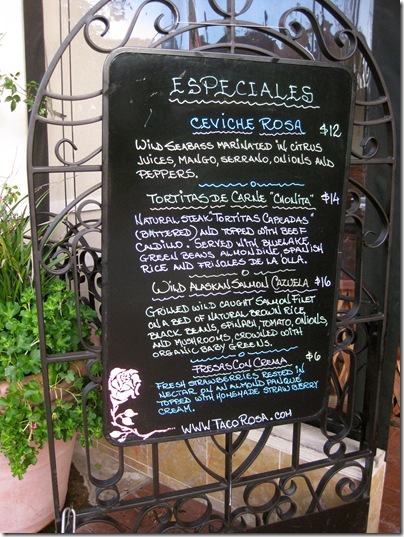 ESPECIALES
CEVICHE ROSA $12
WILD SEABASS MARINATED IN CITRUS
JUICES, MANGO, SERRANO, ONIONS AND
PEPPERS.
TORTITAS DE CARNE "CHONITA" $14
NATURAL STEAK "TORTITAS CAPEADAS"
(BATTERED) AND TOPPED WITH BEEF
CALDILLO. SERVED WITH BLUELAKE
GREEN BEANS, ALMONDINE, SPANISH
RICE AND FRIJOLES DE LA OLLA.
WILD ALASKAN SALMON CAZUELA $16
GRILLED WILD CAUGHT SALMON FILET
ON A BED OF NATURAL BROWN RICE,
BLACK BEANS, SPINACH, TOMATO, ONIONS,
AND MUSHROOMS, CROWNED WITH
ORGANIC BABY GREENS.
FRESAS CON CREMA $6
FRESH STRAWBERRIES RESTED IN
NECTAR ON AN ALMOND PANQUE
TOPPED WITH HOMEMADE STRAWBERRY
CREAM.
WWW.TACOROSA.COM